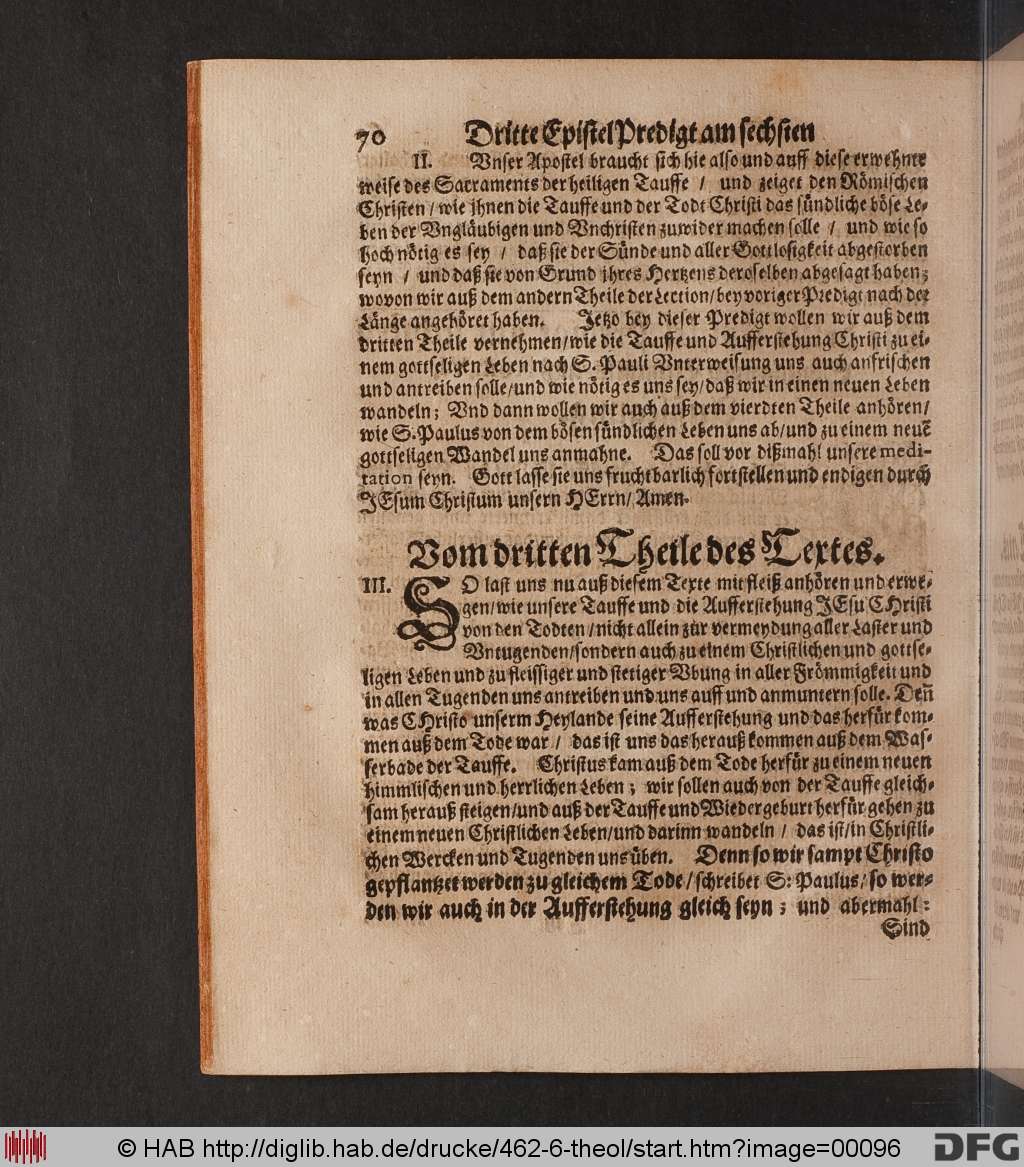 70 Dritte EpistelPredigt am sechsten
II. Vnser Apostel braucht sich hie also und auff diese erwehnte
weise des Sacraments der heiligen Tauffe / und zeiget den Römischen
Christen / wie jhnen die Tauffe und der Todt Christi das sündliche böse Le-
ben der Vngläubigen und Vnchristen zuwider machen solle / und wie so
hoch nötig es sey / daß sie der Sünde und aller Gottlosigkeit abgestorben
seyn / und daß sie von Grund jhres Hertzens deroselben abgesagt haben;
wovon wir auß dem andern Theile der Lection / bey voriger Predigt nach der
Länge angehöret haben. Jetzo bey dieser Predigt wollen wir auß dem
dritten Theile vernehmen / wie die Tauffe und Aufferstehung Christi zu ei-
nem gottseligen Leben nach S. Pauli Vnterweisung uns auch anfrischen
und antreiben solle / und wie nötig es uns sey / daß wir in einen neuen Leben
wandeln; Vnd dann wollen wir auch auß dem vierdten Theile anhören /
wie S. Paulus von dem bösen sündlichen Leben uns ab / und zu einem neuē
gottseligen Wandel uns anmahne. Das soll vor dißmahl unsere medi-
tation seyn. Gott lasse sie uns fruchtbarlich fortstellen und endigen durch
JEsum Christum unsern HErrn / Amen.
Vom dritten Theile des Textes.
III. SO last uns nu auß diesem Texte mit fleiß anhören und erwe-
gen / wie unsere Tauffe und die Aufferstehung JEsu CHristi
von den Todten / nicht allein zur vermeydung aller Laster und
Vntugenden / sondern auch zu einem Christlichen und gottse-
ligen Leben und zu fleissiger und stetiger Vbung in aller Frömmigkeit und
in allen Tugenden uns antreiben und uns auff und anmuntern solle. Deñ
was CHristo unserm Heylande seine Aufferstehung und das herfür kom-
men auß dem Tode war / das ist uns das herauß kommen auß dem Was-
serbade der Tauffe. Christus kam auß dem Tode herfür zu einem neuen
himmlischen und herrlichen Leben; wir sollen auch von der Tauffe gleich-
sam herauß steigen / und auß der Tauffe und Wiedergeburt herfür gehen zu
einem neuen Christlichen Leben / und darinn wandeln / das ist / in Christli-
chen Wercken und Tugenden uns üben. Denn so wir sampt Christo
gepflantzet werden zu gleichem Tode / schreibet S: Paulus / so wer-
den wir auch in der Aufferstehung gleich seyn; und abermahl:
Sind
© HAB http://diglib.hab.de/drucke/462-6-theol/start.htm?image=00096
DFG